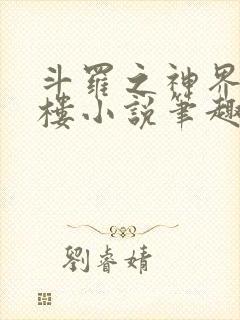 斗羅之神界
樓小說筆趣
劉睿婧